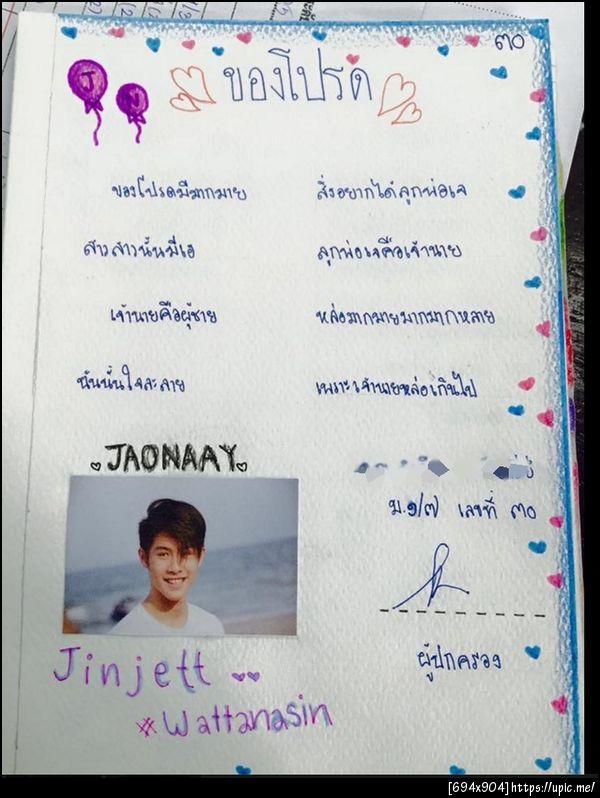 ๓๐
J J
ของโปรด
ของโปรดมีมากมาย สิ่งอยากได้ลูกพ่อเจ
สาวสาวนั้นมีเฮ ลูกพ่อเจคือเจ้านาย
เจ้านายคือผู้ชาย หล่อมากมายมากมากหลาย
นั้นนั้นใจละลาย เพราะเจ้านายหล่อเกินไป
JAONAAY
ม.๑/๗ เลขที่ ๓๐
Jinjett
#Wattanasin
ผู้ปกครอง
[694x904]https://upic.me/